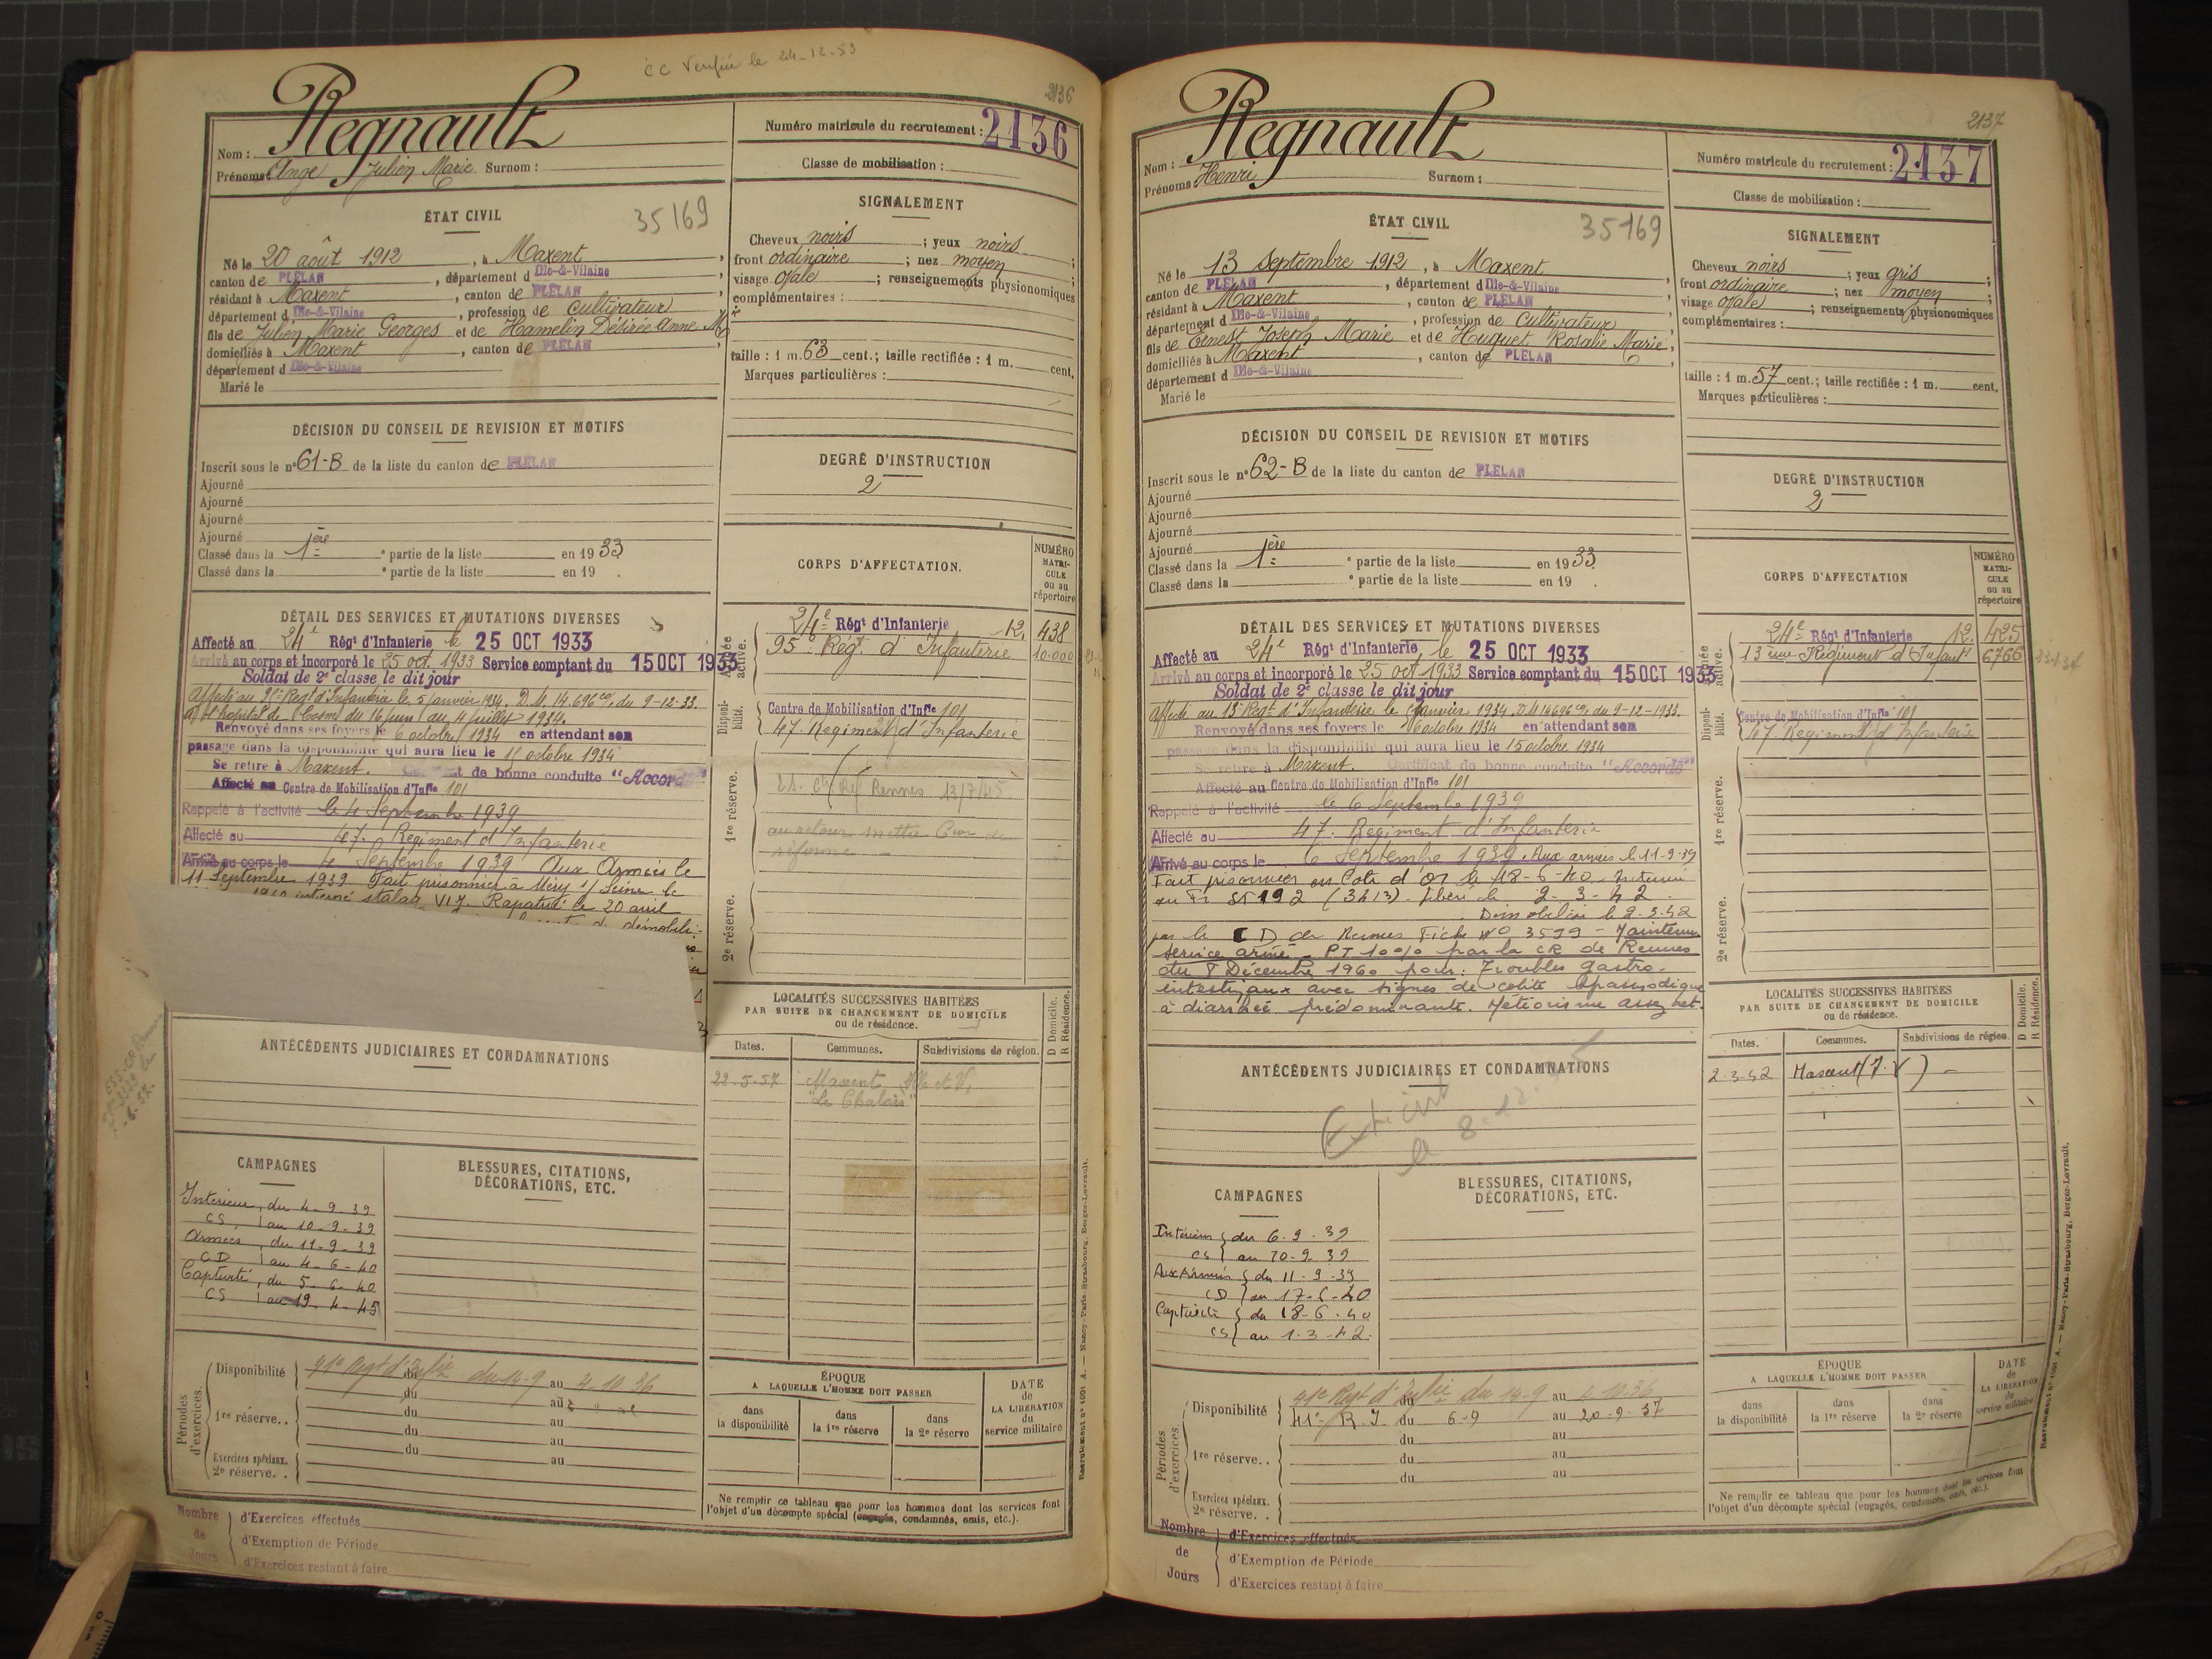 CC Verifiée le 24-12-53
2136
Nom : Regnault
Prénoms : Ange Julien Marie Surnom :
Numéro matricule du recrutement : 2136
Classe de mobilisation :
ÉTAT CIVIL
35169
Né le 20 août 1912, à Maxent,
canton de PLÉLAN, département d Ille-&-Vilaine
résidant à Maxent, canton de PLÉLAN,
département d Ille-&-Vilaine, profession de Cultivateur
fils de Julien Marie Georges et de Hamelin Désirée Anne M
domiciliés à Maxent, canton de PLÉLAN,
département d Ille-&-Vilaine
Marié le
SIGNALEMENT
Cheveux noirs ; yeux noirs ;
front ordinaire ; nez moyen ;
visage ovale ; renseignements physionomiques
complémentaires :
taille : 1 m. 63 cent.; taille rectifiée : 1 m. cent.
Marques particulières :
DÉCISION DU CONSEIL DE REVISION ET MOTIFS
Inscrit sous le n° 61-B de la liste du canton de PLÉLAN
Ajourné
Ajourné
Ajourné
Ajourné
Classé dans la 1ère e partie de la liste en 1933
Classé dans la e partie de la liste en 19 .
DEGRÉ D'INSTRUCTION
2
DÉTAIL DES SERVICES ET MUTATIONS DIVERSES
Affecté au 24e Régt d'Infanterie le 25 OCT 1933
Arrivé au corps et incorporé le 25 oct. 1933 Service comptant du 15 OCT 1933
Soldat de 2e classe le dit jour
Affecté au Regt d'Infanterie le 5 janvier 1934. D.M. 14.696 du 9-12-33.
hôpital de du 16 juin au 4 juillet 1934.
Renvoyé dans ses foyers le 6 octobre 1934 en attendant son
passage dans la disponibilité qui aura lieu le 15 octobre 1934
Se retire à Maxent. Certificat de bonne conduite "Accordé"
Affecté au Centre de Mobilisation d'Infie 101
Rappelé à l'activité le 4 Septembre 1939
Affecté au 47e Régiment d'Infanterie
Arrivé au corps le 4 Septembre 1939 Aux Armées le
11 Septembre 1939 Fait prisonnier à Méry s/ Seine le
1940 interné stalag VI J. Rapatrié le 20 avril
démobili-
CORPS D'AFFECTATION.
NUMÉRO MATRI-CULE ou au répertoire
Armée active.
24e Régt d'Infanterie 12. 438
95e Régt d'Infanterie 10.000
Disponibilité.
Centre de Mobilisation d'Infie 101
47 Régiment d'Infanterie
1re réserve.
Rennes 13/7/45
au retour mettre
réforme
2e réserve.
LOCALITÉS SUCCESSIVES HABITÉES
PAR SUITE DE CHANGEMENT DE DOMICILE
ou de résidence.
D Domicile.
R Résidence.
Dates. Communes. Subdivisions de région.
22-5-57 Maxent Ille et V.
"Le Chalais"
ANTÉCÉDENTS JUDICIAIRES ET CONDAMNATIONS
CAMPAGNES
Intérieur, du 4-9-39
CS, au 10-9-39
Armées, du 11-9-39
CD au 4-6-40
Captivité, du 5-6-40
CS au 19-4-45
BLESSURES, CITATIONS,
DÉCORATIONS, ETC.
Périodes d'exercices.
Disponibilité 41e Regt d'Infie du 14-9 au 4-10 36
du au
1re réserve.. du au
du au
Exercices spéciaux. 2e réserve. .
ÉPOQUE
A LAQUELLE L'HOMME DOIT PASSER
dans la disponibilité
dans la 1re réserve
dans la 2e réserve
DATE de LA LIBÉRATION du service militaire
Ne remplir ce tableau que pour les hommes dont les services font
l'objet d'un décompte spécial (engagés, condamnés, omis, etc.).
Nombre de Jours
d'Exercices effectués
d'Exemption de Période
d'Exercices restant à faire
Recrutement n° 1091 A. — Nancy-Paris-Strasbourg, Berger-Levrault.
2137
Nom : Regnault
Prénoms : Henri Surnom :
Numéro matricule du recrutement : 2137
Classe de mobilisation :
ÉTAT CIVIL
35169
Né le 13 Septembre 1912, à Maxent
canton de PLÉLAN, département d Ille-&-Vilaine
résidant à Maxent, canton de PLÉLAN
département d Ille-&-Vilaine, profession de Cultivateur
fils de Ernest Joseph Marie et de Huguet Rosalie Marie,
domiciliés à Maxent, canton de PLÉLAN
département d Ille-&-Vilaine
Marié le
SIGNALEMENT
Cheveux noirs ; yeux gris ;
front ordinaire ; nez moyen ;
visage ovale ; renseignements physionomiques
complémentaires :
taille : 1 m. 57 cent.; taille rectifiée : 1 m. cent.
Marques particulières :
DÉCISION DU CONSEIL DE REVISION ET MOTIFS
Inscrit sous le n° 62-B de la liste du canton de PLÉLAN
Ajourné
Ajourné
Ajourné
Ajourné
Classé dans la 1ère e partie de la liste en 1933.
Classé dans la e partie de la liste en 19 .
DEGRÉ D'INSTRUCTION
2
DÉTAIL DES SERVICES ET MUTATIONS DIVERSES
Affecté au 24e Régt d'Infanterie, le 25 OCT 1933
Arrivé au corps et incorporé le 25 oct 1933 Service comptant du 15 OCT 1933
Soldat de 2e classe le dit jour
Affecté au 13e Regt d'Infanterie le janvier 1934. D.M 14696 du 9-12-1933.
Renvoyé dans ses foyers le 6 octobre 1934 en attendant son
passage dans la disponibilité qui aura lieu le 15 octobre 1934
Se retire à Maxent. Certificat de bonne conduite "Accordé"
Affecté au Centre de Mobilisation d'Infie 101
Rappelé à l'activité le 6 Septembre 1939
Affecté au 47e Régiment d'Infanterie
Arrivé au corps le 6 Septembre 1939. Aux armées le 11-9-39
Fait prisonnier en Cote d'Or le 18-6-40 Interné
au Fr St 192 (3413). libéré le 2-3-42.
Démobilisé le 2.3.42
par le CD de Rennes Fiche No 3599 - Maintenu
service armé - PT 10% par la CR de Rennes
du 8 Décembre 1960 pour : Troubles gastro-
intestinaux avec signes de colite spasmodique
à diarrhée prédominante. Météorisme assez net.
CORPS D'AFFECTATION
NUMÉRO MATRI-CULE ou au répertoire
Armée active.
24e Régt d'Infanterie 12. 425
13ème Régiment d'Infant 6766
Disponibilité.
Centre de Mobilisation d'Infie 101
47 Régiment d'Infanterie
1re réserve.
2e réserve.
LOCALITÉS SUCCESSIVES HABITÉES
PAR SUITE DE CHANGEMENT DE DOMICILE
ou de résidence.
D Domicile.
R Résidence.
Dates. Communes. Subdivisions de région.
2-3-42 Maxent (I.V)
ANTÉCÉDENTS JUDICIAIRES ET CONDAMNATIONS
Extrait
le 8-12
CAMPAGNES
Intérieur du 6-9-39
CS au 10-9-39
Aux Armées du 11-9-39
CD au 17-6-40
Captivité du 18-6-40
CS au 1-3-42.
BLESSURES, CITATIONS,
DÉCORATIONS, ETC.
Périodes d'exercices
Disponibilité 41e Regt d'Infie du 14-9 au 4-10 36
41e R.I. du 6-9 au 20-9-37
1re réserve.. du au
du au
Exercices spéciaux. 2e réserve. .
ÉPOQUE
A LAQUELLE L'HOMME DOIT PASSER
dans la disponibilité
dans la 1re réserve
dans la 2e réserve
DATE de LA LIBÉRATION du service militaire
Ne remplir ce tableau que pour les hommes dont les services font
l'objet d'un décompte spécial (engagés, condamnés, omis, etc.).
Nombre de Jours
d'Exercices effectués
d'Exemption de Période
d'Exercices restant à faire
Recrutement n° 1091 A. — Nancy-Paris-Strasbourg, Berger-Levrault.